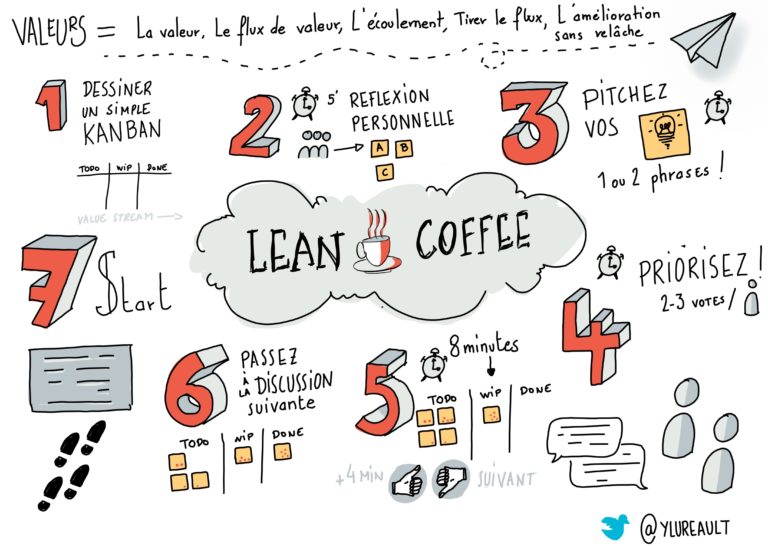 VALEURS = La valeur, Le flux de valeur, L'écoulement, Tirer le flux, L'amélioration
sans relâche
1 DESSINER
UN SIMPLE
KANBAN
TODO WIP DONE
VALUE STREAM
2 5' REFLEXION
PERSONNELLE
A B
C
3 PITCHEZ
VOS
1 ou 2 phrases !
LEAN COFFEE
4 PRIORISEZ !
2-3 VOTES /
5 8 minutes
TODO WIP DONE
+4 MIN SUIVANT
6 PASSEZ
À
LA DISCUSSION
suivante
TODO WIP DONE
7 Start
@YLUREAULT